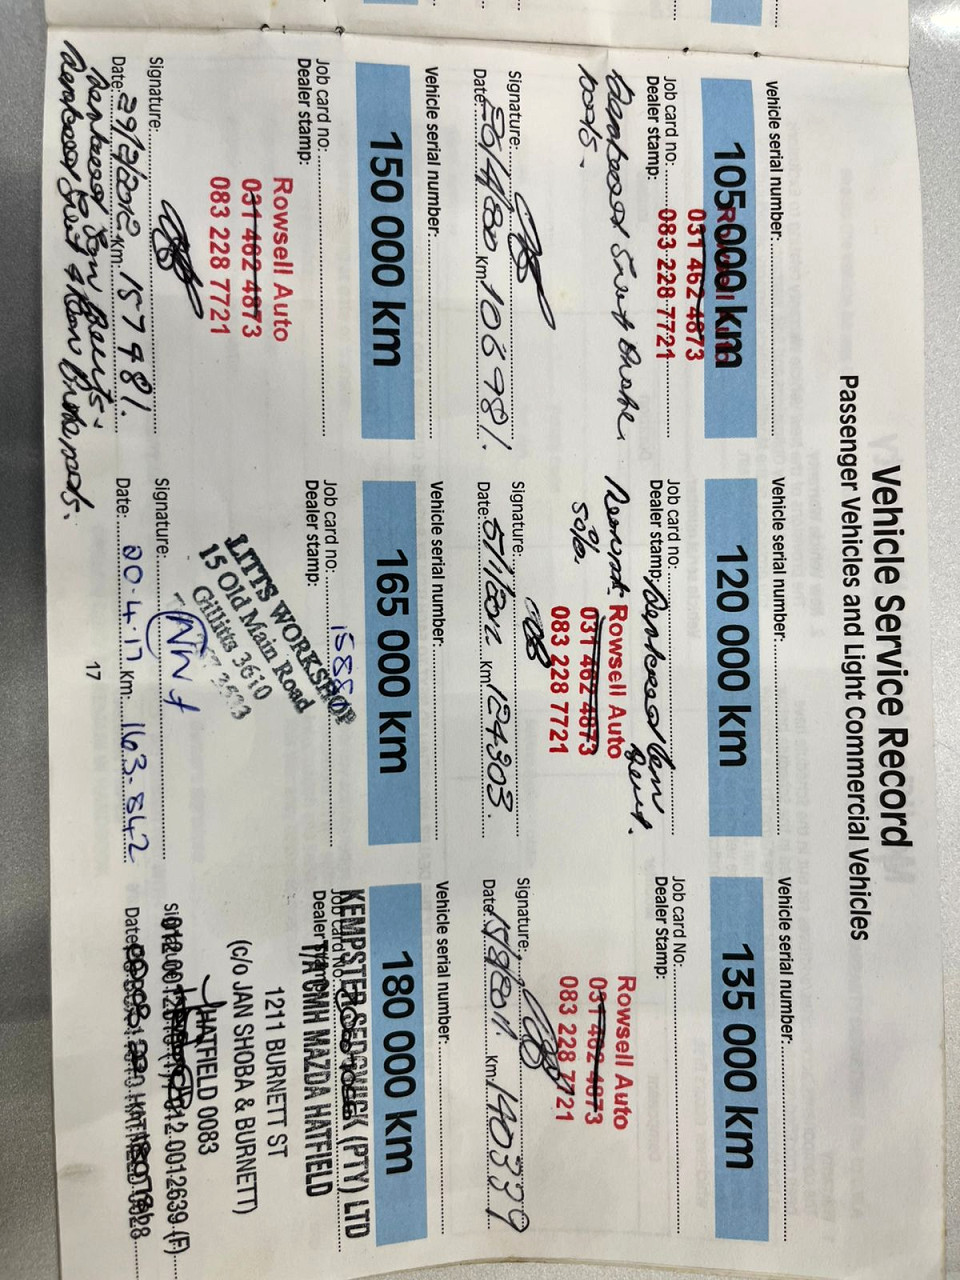 Vehicle Service Record
Passenger Vehicles and Light Commercial Vehicles
vehicle serial number:
105 000 km
Rowsell Auto
031 462 4873
083 228 7721
Job card no:
Dealer stamp:
Brake
Signature:
Date: km 106981.
Vehicle serial number:
120 000 km
Job card no:
Dealer stamp:
Rowsell Auto
031 462 4873
083 228 7721
Signature:
Date: km 124303.
Vehicle serial number:
135 000 km
Job card No:
Dealer Stamp:
Rowsell Auto
031 462 4873
083 228 7721
Signature:
Date: km 140339
Vehicle serial number:
150 000 km
Job card no:
Dealer stamp:
Rowsell Auto
031 462 4873
083 228 7721
Signature:
Date: 29/2/2012 Km: 157981.
Vehicle serial number:
165 000 km
Job card no:
Dealer stamp:
LITTS WORKSHOP
15 Old Main Road
Gillitts 3610
Signature:
Date: 20.4.17 km: 163.842
Vehicle serial number:
180 000 km
KEMPSTER SEDGWICK (PTY) LTD
T/A CMH MAZDA HATFIELD
1211 BURNETT ST
(c/o JAN SHOBA & BURNETT)
HATFIELD 0083
012 0012639 (F)
17